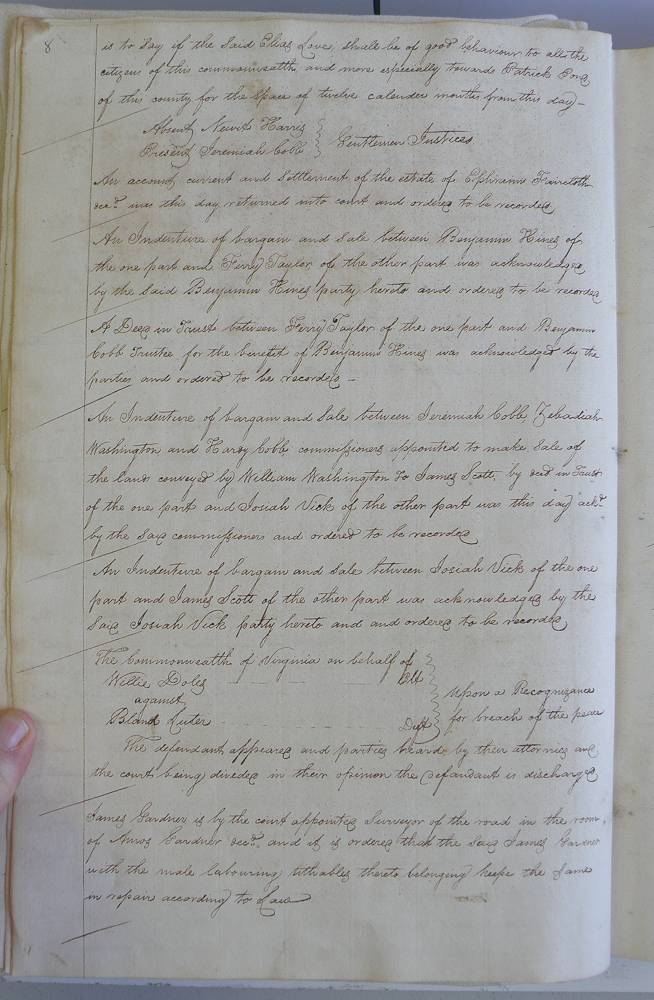 8
is to say if the Said Elias Love, shall be of good behaviour to all the
citizens of this commonwealth and more especially towards Patrick
of this county for the Space of twelve calender months from this day —
Absent Newit Harris
Present Jeremiah Cobb } Gentlemen Justices
An account current and Settlement of the estate of Ephraim Faircloth
decd. was this day returned into court and ordered to be recorded
An Indenture of bargain and Sale between Benjamin Hines of
the one part and Ferry Taylor of the other part was acknowledged
by the Said Benjamin Hines party hereto and ordered to be recorded
A Deed in Trust between Ferry Taylor of the one part and Benjamin
Cobb Trustee for the benefit of Benjamin Hines was acknowledged by the
parties and ordered to be recorded —
An Indenture of bargain and Sale between Jeremiah Cobb, Zebadiah
Washington and Hardy Cobb commissioners appointed to make Sale of
the land conveyed by William Washington to James Scott by deed in Trust
of the one part and Josiah Vick of the other part was this day ackd.
by the Said commissioners and ordered to be recorded
An Indenture of bargain and Sale between Josiah Vick of the one
part and James Scott of the other part was acknowledged by the
Said Josiah Vick party hereto and and ordered to be recorded
The Commonwealth of Virginia on behalf of
Willie Doles Plt
against
Bland Luter Deft
} Upon a Recognizance
for breach of the peace
The defendant appeared and parties heard by their attornies and
the court being divided in their opinion the Defandant is discharged
James Gardner is by the court appointed Surveyor of the road in the room
of Amos Gardner decd. and it is ordered that the Said James Gardner
with the male labouring tithables thereto belonging keep the Same
in repair according to Law